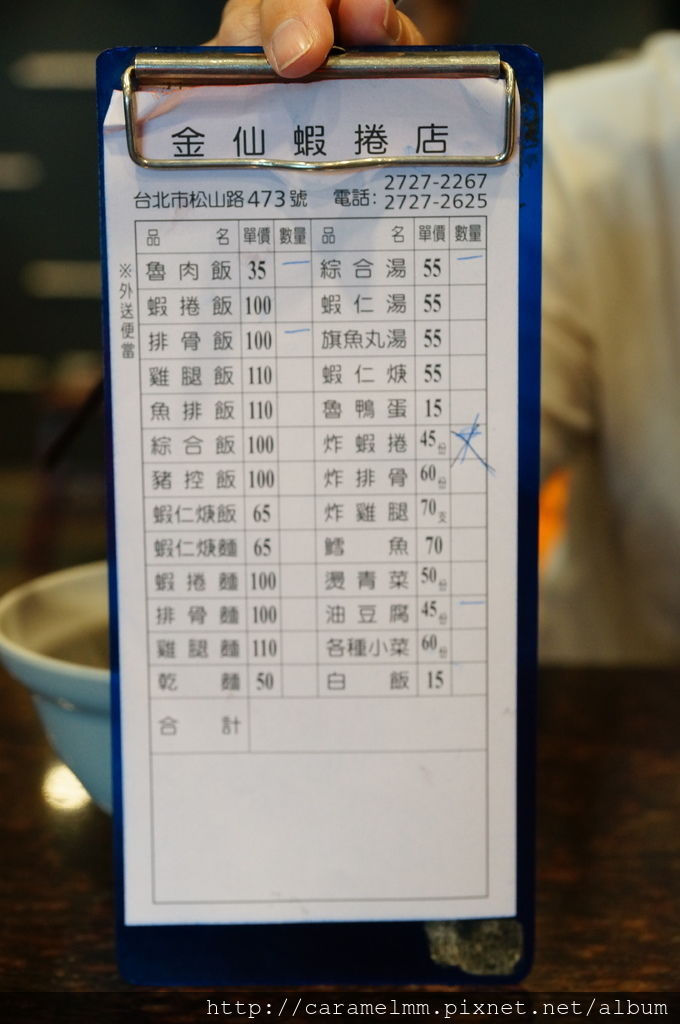 金仙蝦捲店
台北市松山路473號 電話: 2727-2267
2727-2625
品名 單價 數量 品名 單價 數量
※外送便當
魯肉飯 35 一 綜合湯 55 一
蝦捲飯 100 蝦仁湯 55
排骨飯 100 一 旗魚丸湯 55
雞腿飯 110 蝦仁焿 55
魚排飯 110 魯鴨蛋 15
綜合飯 100 炸蝦捲 45份
豬控飯 100 炸排骨 60份
蝦仁焿飯 65 炸雞腿 70支
蝦仁焿麵 65 鱈魚 70
蝦捲麵 100 燙青菜 50份
排骨麵 100 油豆腐 45份 一
雞腿麵 110 各種小菜 60份
乾麵 50 白飯 15
合計
http://caramelmm.pixnet.net/album